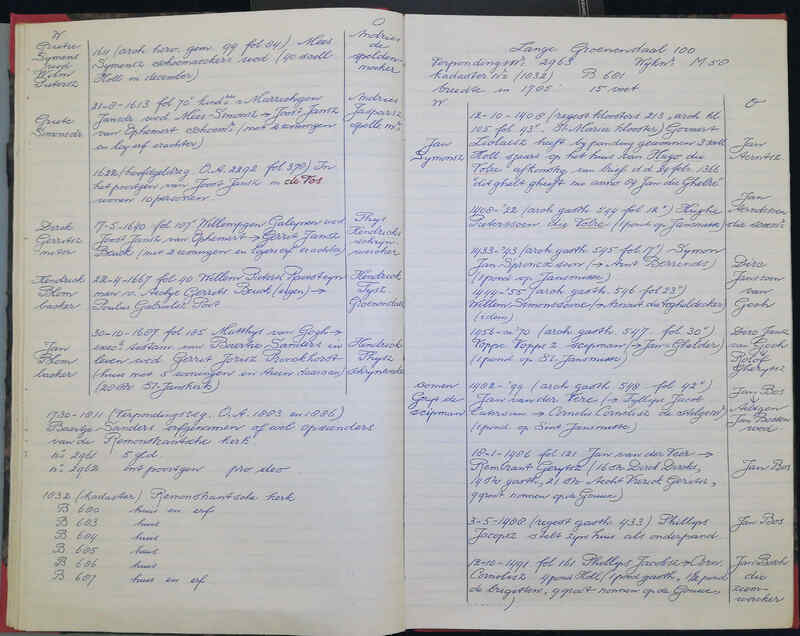 W
O
Grietie Symons wed Willem Pietersz
164 (arch herv. gem. 99 fol 84) Mees
Symonsz schoenmaeckers wed (40 st
Holl in december)
Andries de spelden-maker
Griete Simonsdr
21-8-1613 fol 70 Marrichgen
Jansdr wed Mees Simonsz → Joost Jansz
van Ophemert schoenm. (met 2 woningen
en leeg erf erachter)
Andries Jaspersz
1622 (hoofdgeldreg. O.A. 2292 fol 379) In
het poortgen van Joost Jansz in de Vos
wonen 10 personen
Dirck Gerritsz
17-5-1640 fol 107 Willempgen Galeynen wed
Joost Jansz van Ophemert → Gerrit Jansz
Beuck (met 2 woningen en leger erf erachter)
Thijs Hendricks schrijn-wercker
Hendrick Blom backer
22-4-1667 fol 40 Willem Pieters Ravesteyn
man v. Aechje Gerrits Beuck (eigen) →
Paulus Gabriels Post
Hendrick Tysz Groenendael
Jan Blom backer
30-10-1687 fol 185 Matthijs van Gogh →
exec. testam. van Baertje Sanders en
leven wed Gerrit Jorisz Bronckhorst
(huis met 5 woningen en steen daeraan)
(20 st St Janskerk)
Hendrick Thysz schrijnwerker
1730-1811 (Verpondingsreg. O.A. 1883 en 1886)
Baertje Sanders erfgenamen of wel opzienders
van de Remonstrantsche kerk.
no 2961 5 gld
no 2962 int poortgen pro deo
1832 (kadaster) Remonstrantsche kerk
B 600 huis en erf
B 603 huis
B 604 huis
B 605 huis
B 606 huis
B 607 huis en erf
Lange Groenendaal 100
Verpondingsno. 2963 Wijkno. M 50
Kadaster no (1832) B 601
breedte in 1785: 15 voet
W
O
Jan Symonsz
12-10-1408 (regest kloosters 213, arch kl
105 fol 43. St. Maria klooster) Govaert
heeft by panding gewonnen 3 st
Holl spars op het huis van Hugo die
Volre afkomstig van brief d.d. 1366
dit ghelt gheeft nu anno 84 Jan die Ghelre
Jan Aerntsz
1408-'22 (arch gasth 544 fol 12) Hughe
Pieterssoen die Volre (1 pond op Jansmisse)
Jan Aerntssoen
1433-'43 (arch gasth 545 fol 17) Symon
Jan Spronck soen (→ Aernt Berrends)
(1 pond op Jansmisse)
1444-'55 (arch gasth. 546 fol 23)
Willem Simonssoene (→ Aernt die Vogheldecker)
(idem)
Dirc Janssoen van Goch
1456-'70 (arch gasth. 547 fol 30)
Foppe Foppez scipman (→ Jan Ghelder)
(1 pond op St. Jansmisse)
Dirc Jansz van Goch
Roloff Gherytsz
comen Gijs de scipman
1482-'99 (arch gasth 548 fol 42)
Jan van der Vere (→ Fyllips Jacob
→ Cornelis Cornelisz de)
(1 pond op Sint Jansmisse)
Jan Bos
Aeltgen Jan Bossen wed
18-1-1486 fol 121 Jan van der Veer →
Rembrant Gerytsz (16 st Dirck Dircks,
4 st gasth, 21 st Aecht Vrerick Gerritss,
4 groot nonnen op de Gouwe)
Jan Bos
3-5-1488 (regest gasth 433) Phillips
Jacopsz stelt zijn huis als onderpand.
Jan Bos
12-10-1491 fol 161 Phillips Jacobsz → Corn.
Cornelisz 4 pond Holl (1 pond gasth, 1½ pond
de bregitten, 4 groot nonnen op de Gouwe
)
Jan Bosch die riem-wercker